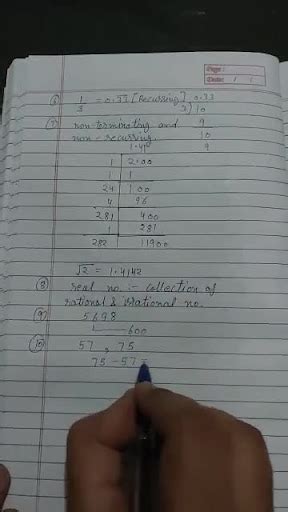 Page :
Date: / /
⑥ 1/3 = 0.33 [Recurring] 0.33
3) 10
9
10
9
⑦ non-terminating and
non-recurring.
1.41
1 | 2.00
1 | 1
24 | 100
4 | 96
281 | 400
1 | 281
282 | 11900
√2 = 1.4142
⑧ real no. :- collection of
rational & irrational no.
⑨ 5698
600
⑩ 57, 75
75 - 57 =